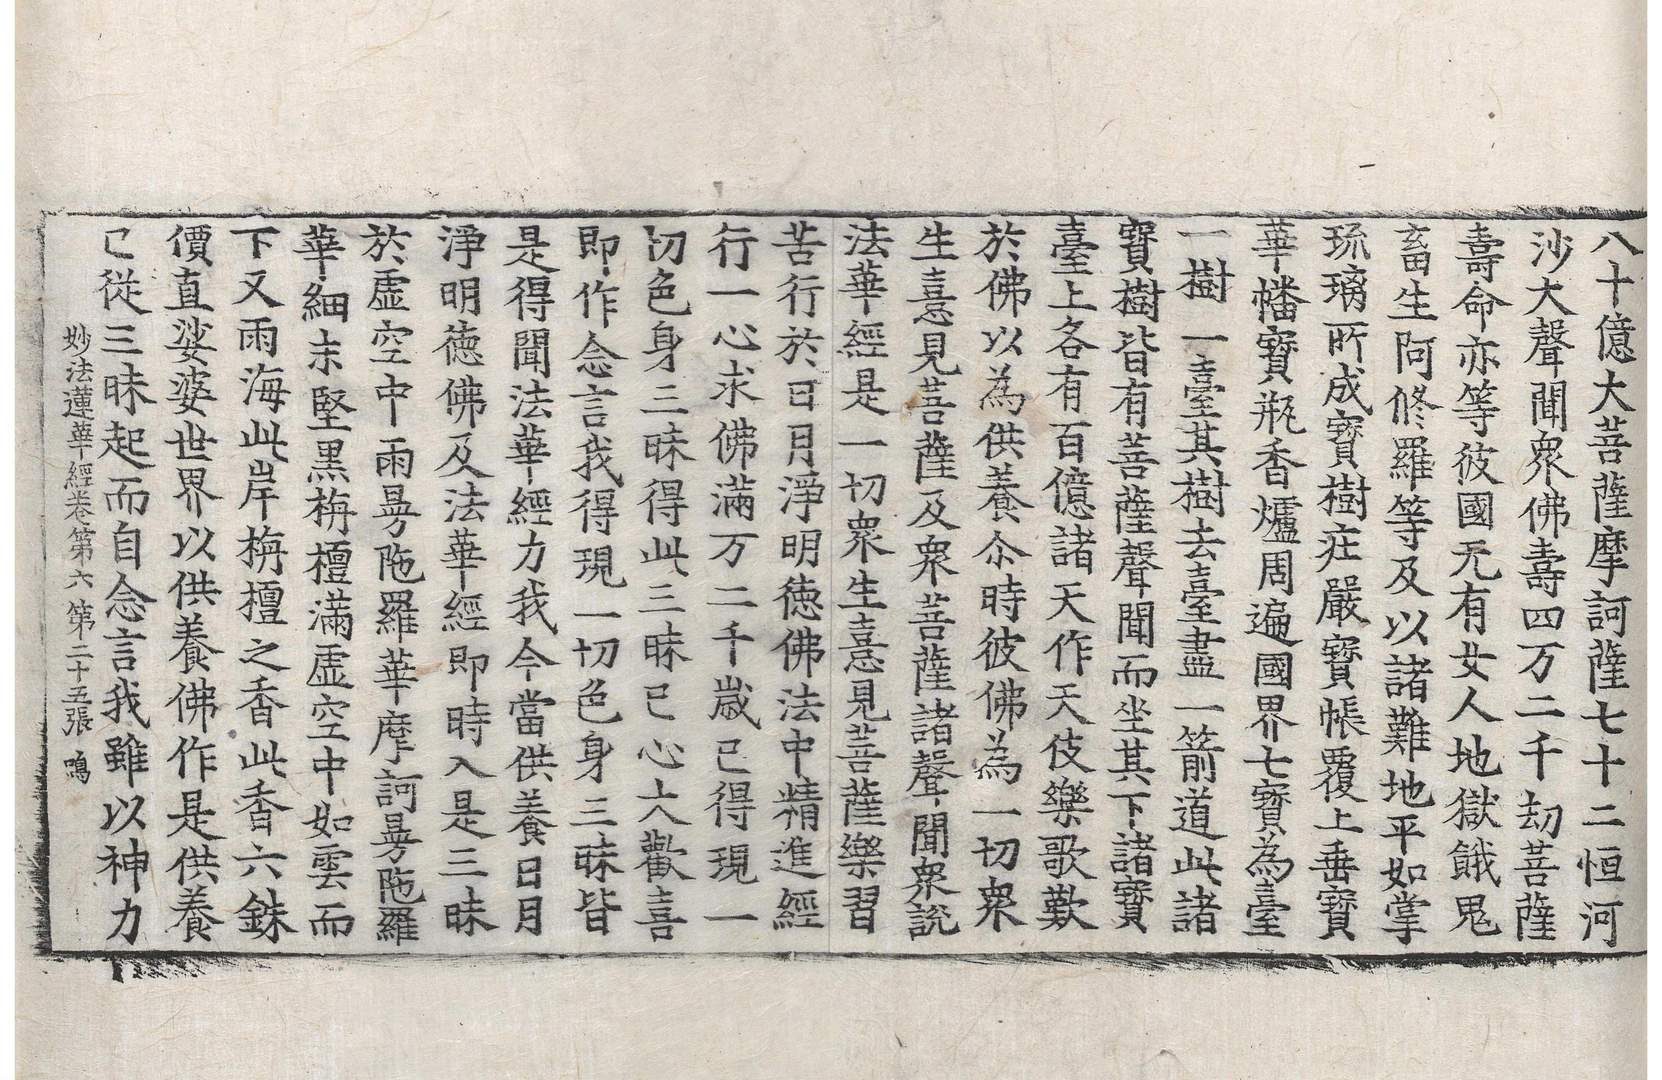 八十億大菩薩摩訶薩七十二恒河
沙大聲聞衆佛壽四万二千劫菩薩
壽命亦等彼國无有女人地獄餓鬼
畜生阿脩羅等及以諸難地平如掌
琉璃所成寶樹庄嚴寶帳覆上垂寶
華幡寶瓶香爐周遍國界七寶為臺
一樹一臺其樹去臺盡一箭道此諸
寶樹皆有菩薩聲聞而坐其下諸寶
臺上各有百億諸天作天伎樂歌歎
於佛以為供養尒時彼佛為一切衆
生憙見菩薩及衆菩薩諸聲聞衆說
法華經是一切衆生憙見菩薩樂習
苦行於日月淨明德佛法中精進經
行一心求佛滿万二千歲已得現一
切色身三昧得此三昧已心大歡喜
即作念言我得現一切色身三昧皆
是得聞法華經力我今當供養日月
淨明德佛及法華經即時入是三昧
於虛空中雨曼陁羅華摩訶曼陁羅
華細末堅黑栴檀滿虛空中如雲而
下又雨海此岸栴檀之香此香六銖
價直娑婆世界以供養佛作是供養
已從三昧起而自念言我雖以神力
妙法蓮華經卷第六 第二十五張 鳴